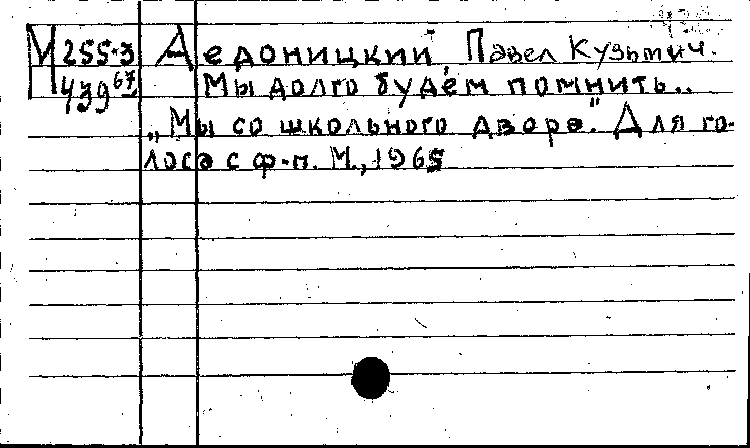 М 255-3 Аедоницкий, Павел Кузьмич.
439 67 Мы долго будем помнить..
„Мы со школьного двора". Для го-
лоса с ф-п. М., 1965